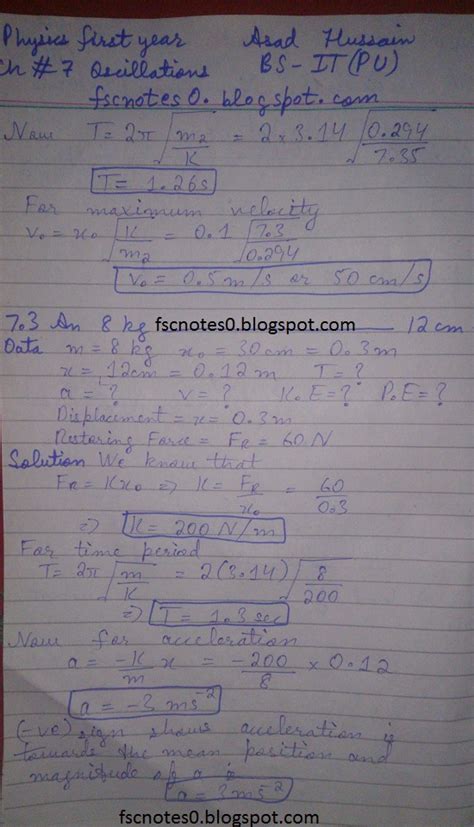 Physics first year Asad Hussain
Ch # 7 Oscillations BS-IT(PU)
fscnotes0.blogspot.com
Now T = 2π √(m2/K) = 2×3.14 √(0.294/7.35)
T = 1.26s
For maximum velocity
v0 = x0 √(K/m2) = 0.1 √(7.3/0.294)
v0 = 0.5 m/s or 50 cm/s
7.3 An 8 kg fscnotes0.blogspot.com 12 cm
Data m = 8 kg x0 = 30 cm = 0.3 m
x = 12cm = 0.12 m T = ?
a = ? v = ? K.E = ? P.E = ?
Displacement = x = 0.3 m
Restoring Force = FR = 60 N
Solution We know that
FR = Kx0 => K = FR/x0 = 60/0.3
=> K = 200 N/m
For time period
T = 2π √(m/K) = 2(3.14) √(8/200)
=> T = 1.3 sec
Now for acceleration
a = -K/m x = -200/8 × 0.12
a = -3 ms⁻²
(-ve) sign shows acceleration is
towards the mean position and
magnitude of a is
a = 3 ms⁻²
fscnotes0.blogspot.com